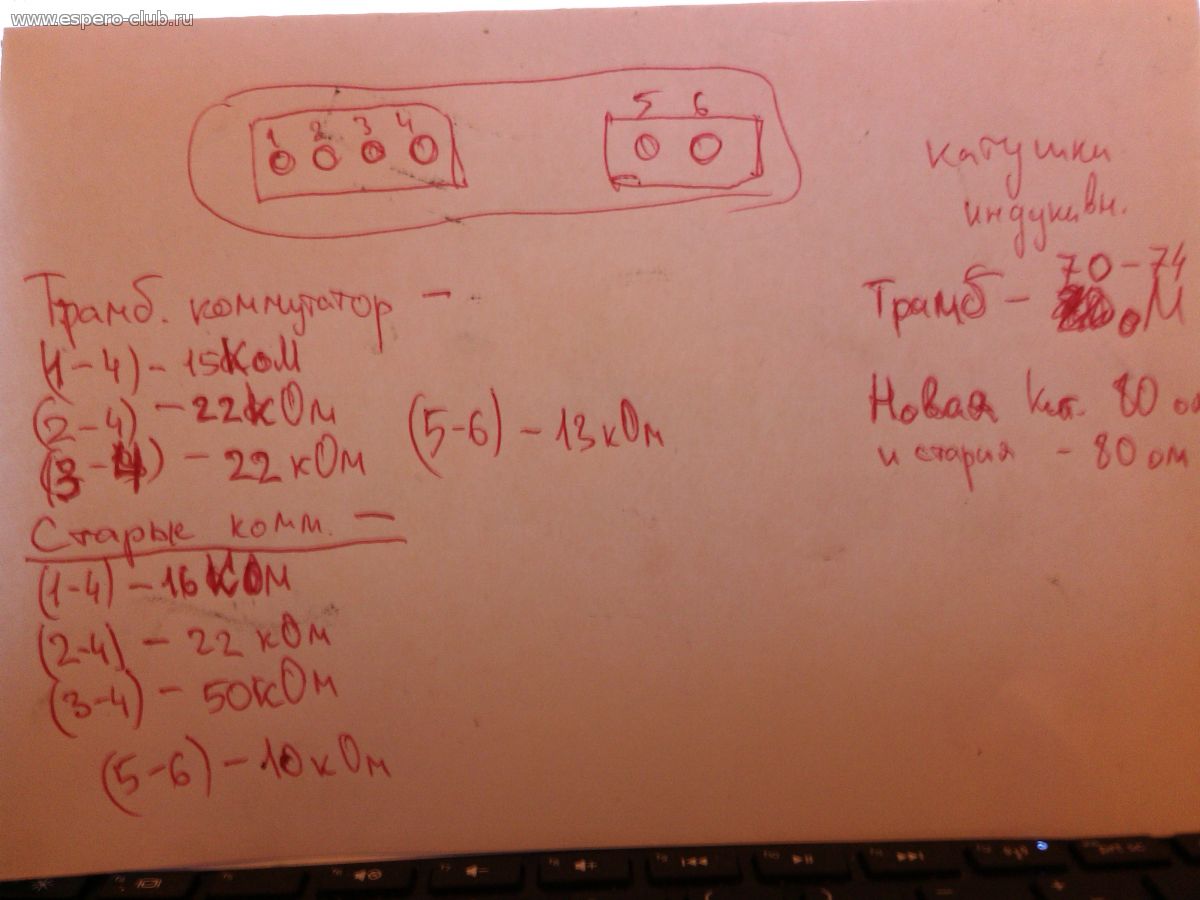 www.espero-club.ru
1 2 3 4
5 6
катушки
индуктивн.
Трамб. коммутатор —
(1-4) - 15КоМ
(2-4) - 22кОм
(3-4) - 22кОм
(5-6) - 13кОм
70-74
Трамб - оМ
Новая кат. 80 ом
и старая - 80 ом
Старые комм. —
(1-4) - 16КОм
(2-4) - 22 кОм
(3-4) - 50кОм
(5-6) - 10кОм